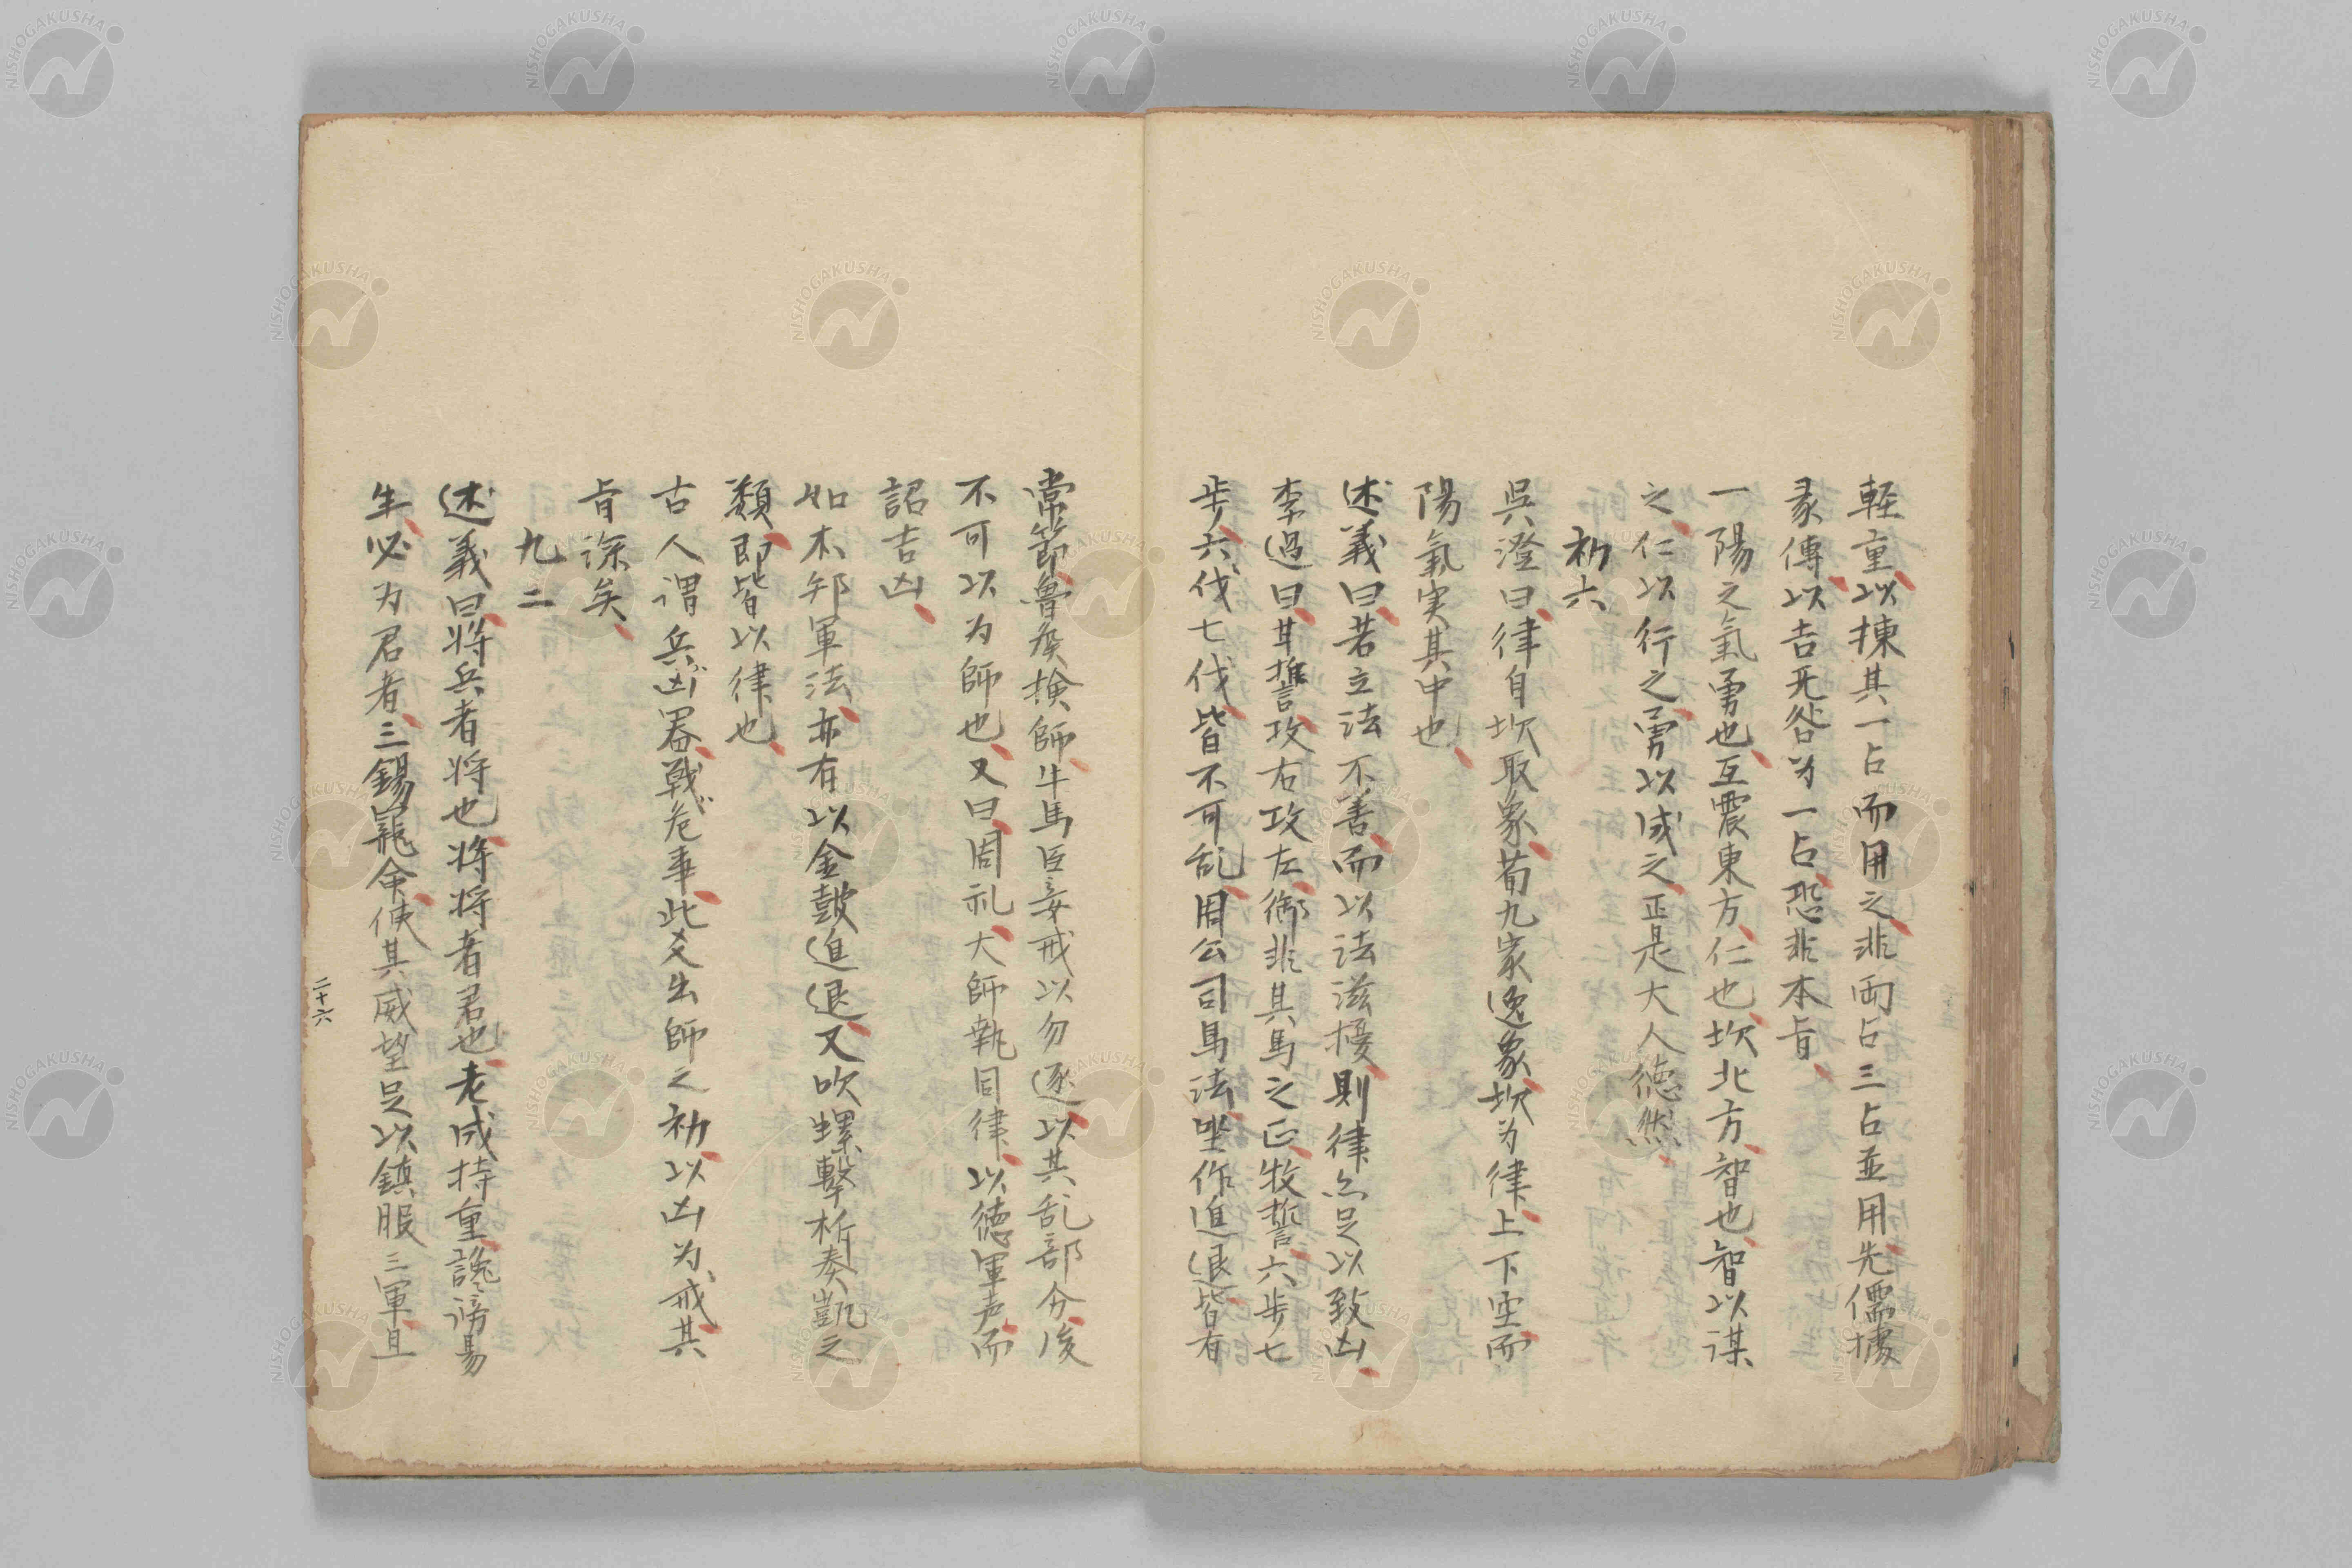 輕重、以揀其一占而用之、非両占三占並用、先儒據
彖傳、以吉旡咎为一占、恐非本旨、
一陽之氣勇也、互震東方、仁也、坎北方、智也、智以謀
之、仁以行之、勇以成之、正是大人徳然、
初六
呉澄曰、律自坎取象、荀九家逸象、坎为律、上下空而
陽氣実其中也、
述義曰、若立法不善、而以法滋擾、則律亦足以致凶、
李過曰、甘誓攻右攻左、御非其馬之正、牧誓、六歩七
歩、六伐七伐、皆不可乱、周公司馬法、坐作進退、皆有
常節、魯矦撿師、牛馬臣妾、戒以勿逐、以其乱部分、後
不可以为師也、又曰、周礼、大師執同律、以徳軍声、而
詔吉凶、
如本邦軍法、亦有以金鼓進退、又吹螺擊柝奏凱之
類、即皆以律也、
古人謂兵凶噐、戦危事、此爻出師之初、以凶为戒、其
旨深矣、
九二
述義曰、将兵者将也、将将者君也、老成持重、讒謗易
生、必为君者、三錫寵命、使其威望足以鎮服三軍、且
二十六
NISHOGAKUSHA